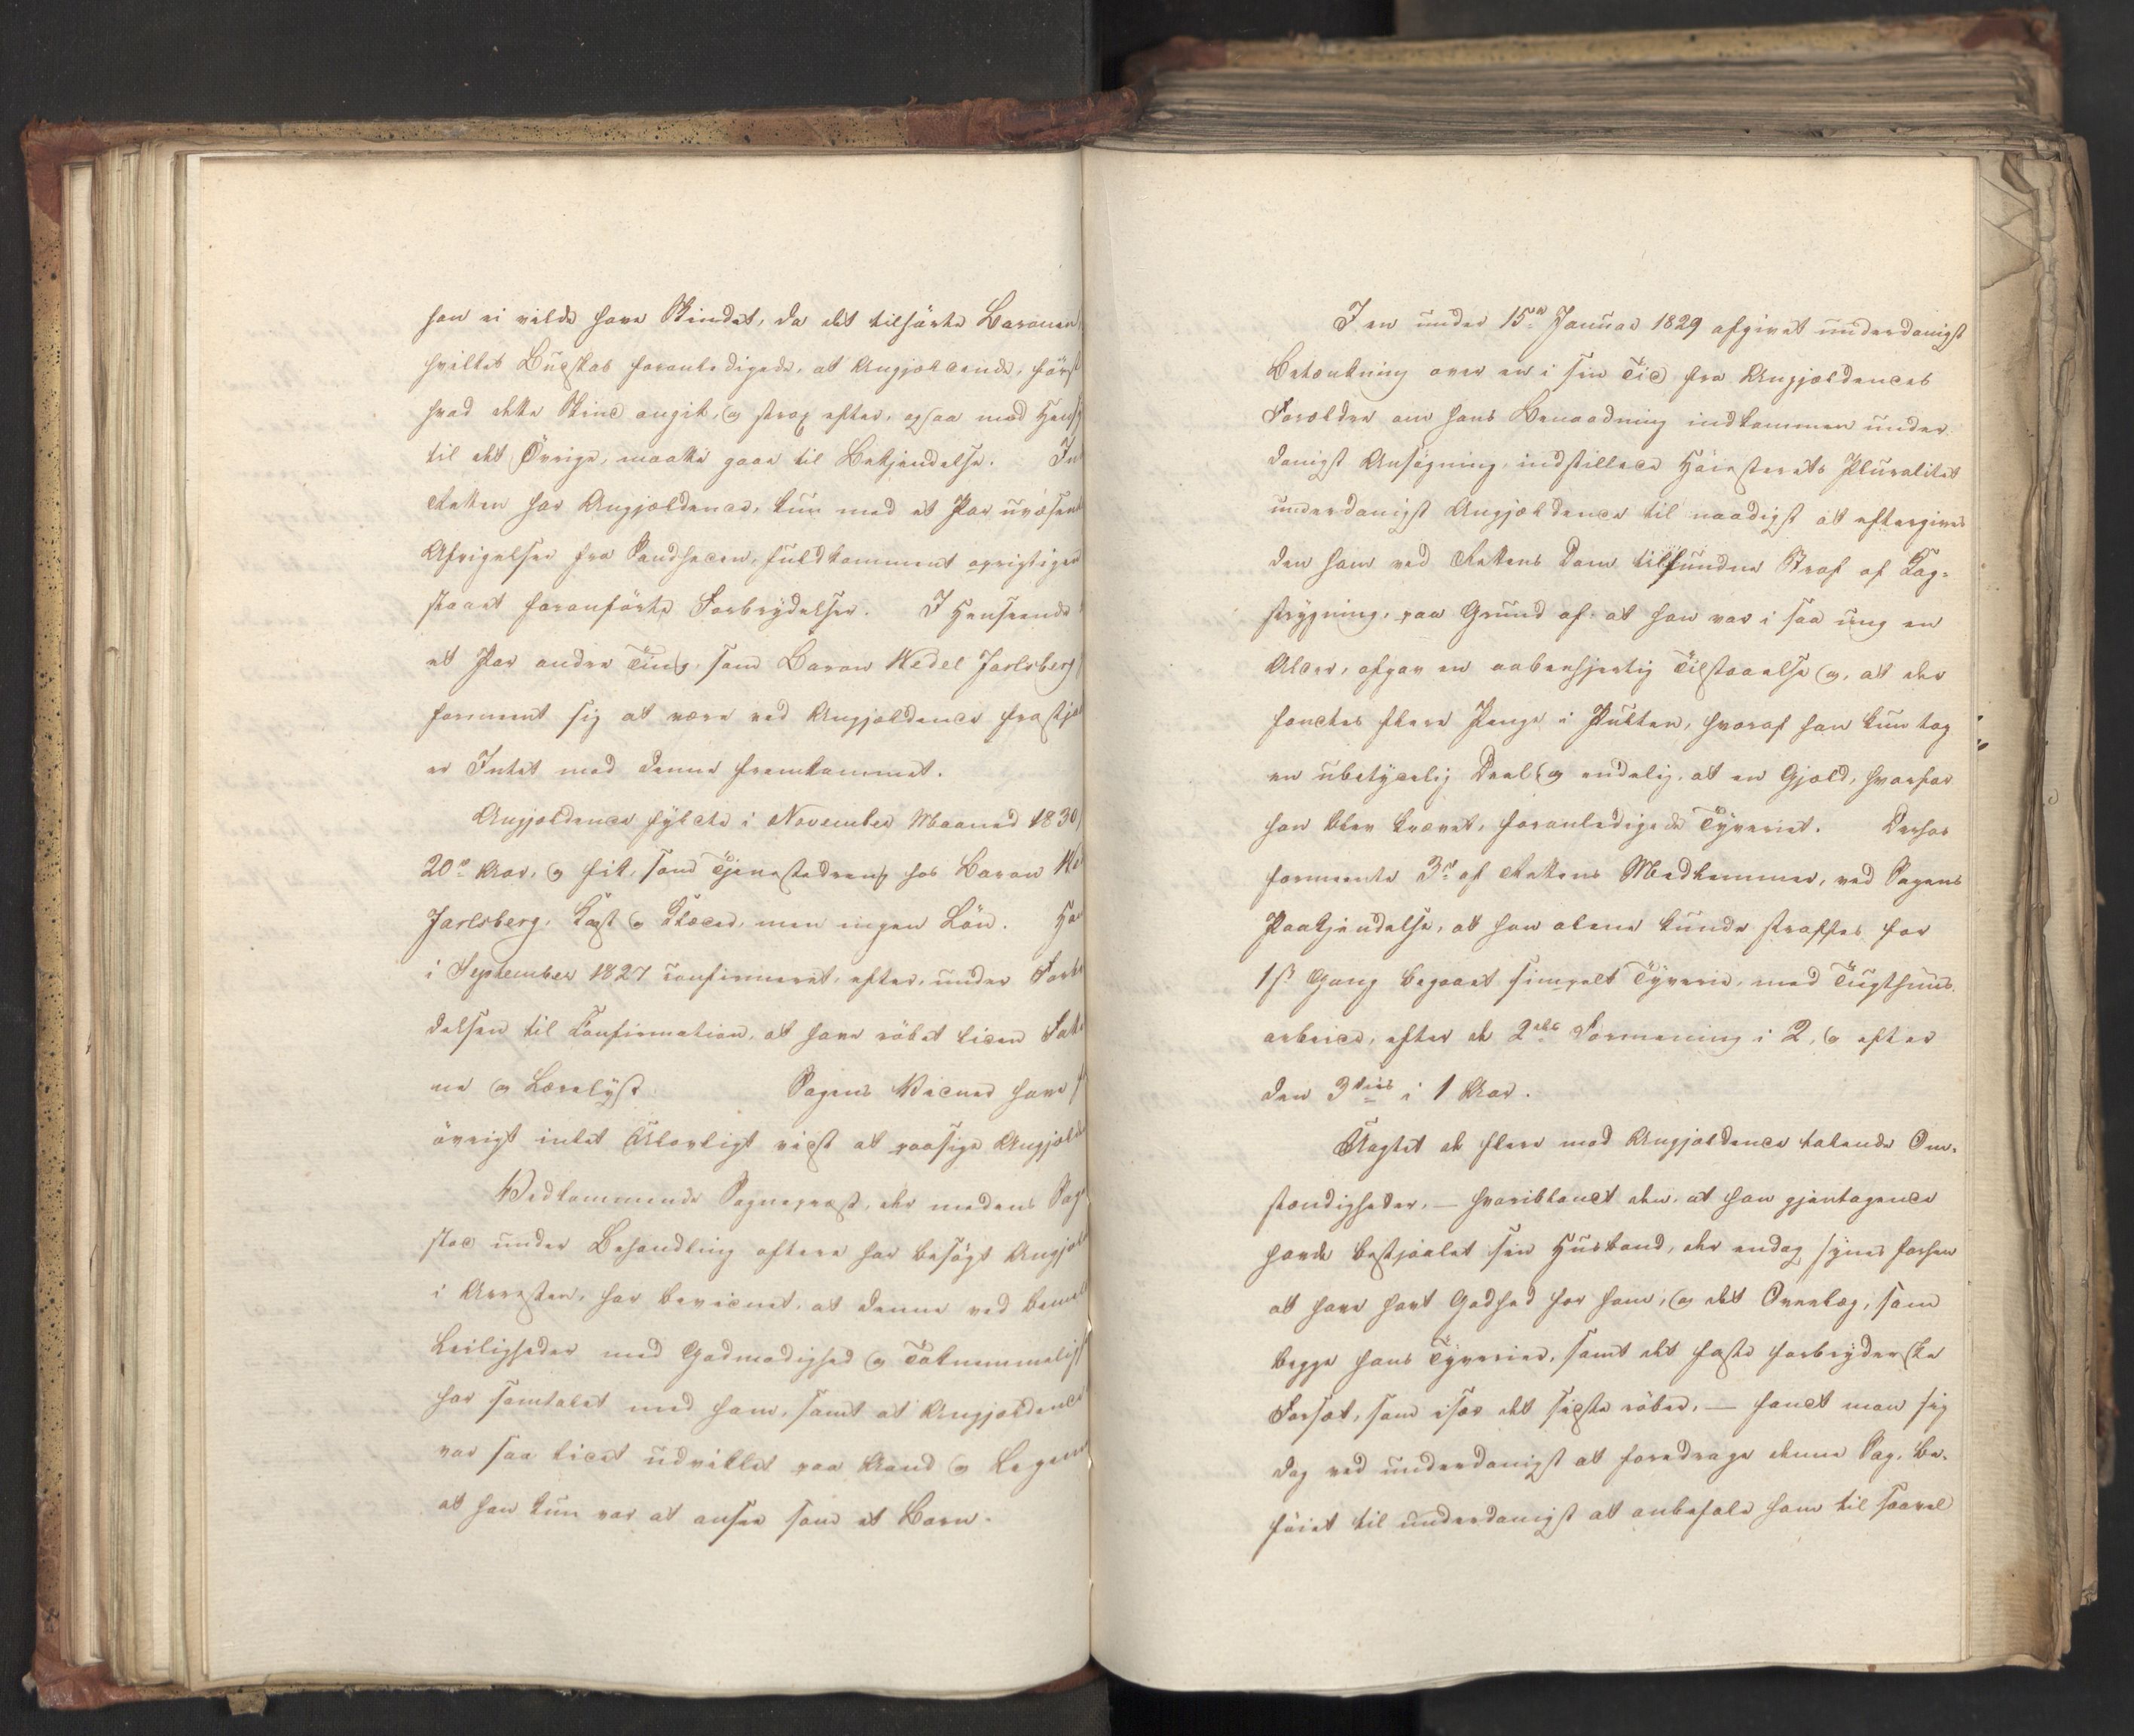 han ei vilde have Skindet, da det tilhörte Baronen
hvilket Budskab foranledigede, at Angjældende, först
hvad dette Skind angik, og strax efter, ogsaa med Hens
til det Övrige, maatte gaae til Bekjendelse. In
Retten har Angjældende, kun med et Par uvæsent
Afvigelser fra Sandheden, fuldkomment oprigtigen
staaet foranförte Forbrydelser. I Henseende
et Par andre Ting, som Baron Wedel Jarlsberg
formeent sig at være ved Angjældende frastjaa
er Intet mod denne fremkommet.
Angjældende fyldte i November Maaned 1830
20de Aar, og fik, som Tjenestedreng hos Baron We
Jarlsberg, Kost og Klæder, men ingen Lön. Han
i September 1827 confirmeret, efter, under Forbe
delsen til Confirmation, at have röbet liden Fatte
ne og Lærelyst. Sagens Vidner have f
övrigt intet Ufordeelagtigt vidst at paasige Angjæld
Vedkommende Sognepræst, der medens Sage
stod under Behandling oftere har besögt Angjæld
i Arresten, har bevidnet, at denne ved bemel
Leiligheder med Godmodighed og Taknemmelig
har samtalet med ham, samt at Angjældende
var saa lidet udviklet paa Aand og Legem
at han kun var at ansee som et Barn.
I en under 15de Januar 1829 afgivet underdanigst
Betænkning over en i sin Tid fra Angjældendes
Forældre om hans Benaadning indkommen under-
danigst Ansögning, indstillede Höiesterets Pluralitet
underdanigst Angjældende til naadigst at eftergives
den ham ved Rettens Dom tilfundne Straf af Kag-
strygning, paa Grund af at han var i saa ung en
Alder, afgav en aabenhjertig Tilstaaelse og, at der
fandtes flere Penge i Pulten, hvoraf han kun tog
en ubetydelig Deel og endelig, at en Gjæld, hvorfor
han blev krævet, foranledigede Tyveriet. Derhos
formeente 3de af Rettens Medlemmer, ved Sagens
Paakjendelse, at han alene kunde straffes for
1ste Gang begaaet simpelt Tyverie, med Tugthuus-
arbeide, efter de 2des Formening i 2, og efter
den 3dies i 1 Aar.
Uagtet de flere mod Angjældende talende Om-
stændigheder, — hvoriblandt den, at han gjentagende
havde bestjaalet sin Husbond, der endog synes forhen
at have havt Godhed for ham, og det Overlæg, som
begge hans Tyverier, samt det faste forbryderske
Forsæt, som især det sidste röber, — fandt man sig
dog ved underdanigst at foredrage denne Sag, be-
föiet til underdanigst at anbefale ham til saavel